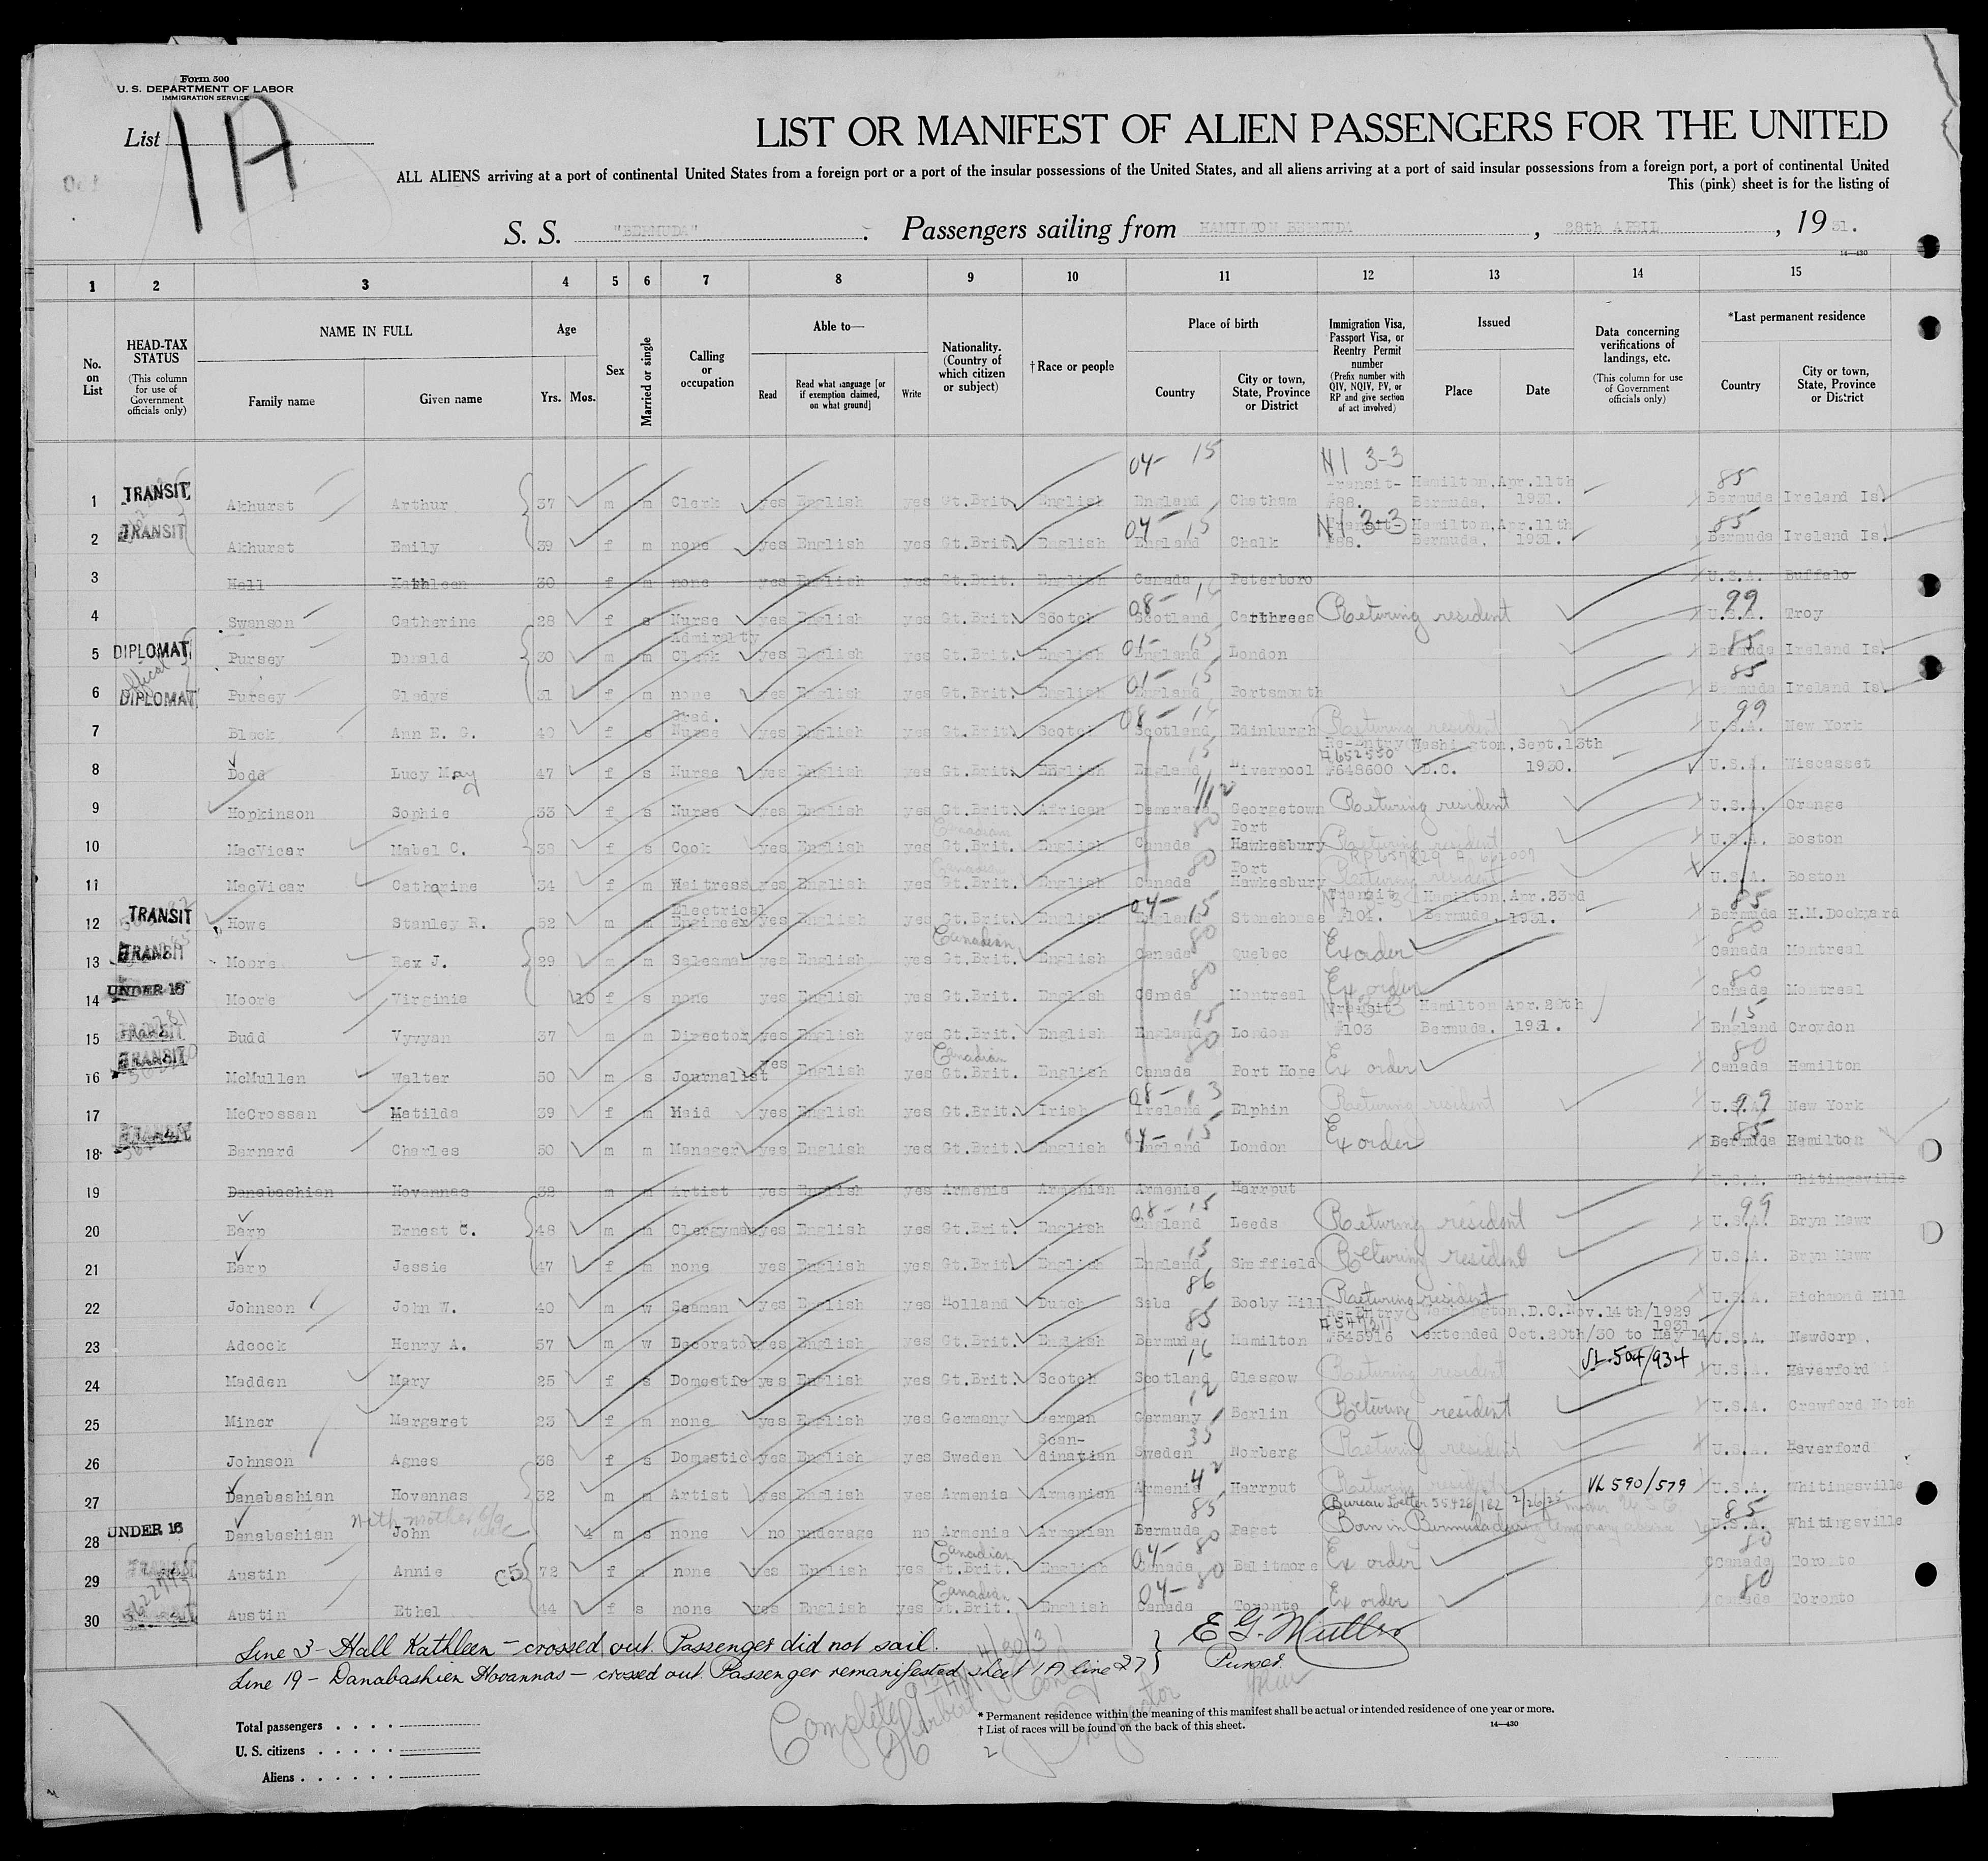 Form 500
U. S. DEPARTMENT OF LABOR
IMMIGRATION SERVICE
List 1A
LIST OR MANIFEST OF ALIEN PASSENGERS FOR THE UNITED
ALL ALIENS arriving at a port of continental United States from a foreign port or a port of the insular possessions of the United States, and all aliens arriving at a port of said insular possessions from a foreign port, a port of continental United
This (pink) sheet is for the listing of
S. S. "BERMUDA" Passengers sailing from HAMILTON BERMUDA, 28th APRIL, 1931.
14—430
1 2 3 4 5 6 7 8 9 10 11 12 13 14 15
No. on List
HEAD-TAX STATUS (This column for use of Government officials only)
NAME IN FULL
Family name Given name
Age
Yrs. Mos.
Sex
Married or single
Calling or occupation
Able to—
Read Read what language [or if exemption claimed, on what ground] Write
Nationality. (Country of which citizen or subject)
†Race or people
Place of birth
Country City or town, State, Province or District
Immigration Visa, Passport Visa, or Reentry Permit number (Prefix number with QIV, NQIV, PV, or RP and give section of act involved)
Issued
Place Date
Data concerning verifications of landings, etc. (This column for use of Government officials only)
*Last permanent residence
Country City or town, State, Province or District
04- 15 N1 3-3 85
1 TRANSIT Akhurst Arthur 37 m m Clerk yes English yes Gt.Brit. English England Chatham Transit- #88. Hamilton, Bermuda. Apr.11th 1931. Bermuda Ireland Is.
04- 15 N1 3-3 85
2 TRANSIT Akhurst Emily 39 f m none yes English yes Gt.Brit. English England Chalk Transit- #88. Hamilton, Bermuda. Apr.11th 1931. Bermuda Ireland Is.
3 Hall Kathleen 30 f m none yes English yes Gt.Brit. English Canada Peterboro U.S.A. Buffalo
08- 16 99
4 Swanson Catherine 28 f s Nurse yes English yes Gt.Brit. Scotch Scotland Carthrees Returing resident U.S.A. Troy
01- 15 85
5 DIPLOMAT Pursey Donald 30 m m Admiralty Clerk yes English yes Gt.Brit. English England London Bermuda Ireland Is.
official 01- 15 85
6 DIPLOMAT Pursey Gladys 31 f m none yes English yes Gt.Brit. English England Portsmouth Bermuda Ireland Is.
08- 16 99
7 Black Ann E. G. 40 f s Grad. Nurse yes English yes Gt.Brit. Scotch Scotland Edinburgh Returing resident U.S.A. New York
15
8 Dodd Lucy May 47 f s Nurse yes English yes Gt.Brit. English England Liverpool Re-Entry A652550 #648600 Washington, D.C. Sept.13th 1930. U.S.A. Wiscasset
9 Hopkinson Sophie 33 f s Nurse yes English yes Gt.Brit. African Demerara Georgetown Returing resident U.S.A. Orange
Canadian 80
10 MacVicar Mabel C. 38 f s Cook yes English yes Gt.Brit. English Canada Port Hawkesbury Returing resident U.S.A. Boston
Canadian 80
11 MacVicar Catharine 34 f m Waitress yes English yes Gt.Brit. English Canada Port Hawkesbury Returing resident U.S.A. Boston
04- 15 85
12 TRANSIT Howe Stanley R. 52 m m Electrical Engineer yes English yes Gt.Brit. English England Stonehouse Transit #104. Hamilton, Bermuda. Apr.23rd 1931. Bermuda H.M.Dockyard
Canadian 80 80
13 TRANSIT Moore Rex J. 29 m m Salesman yes English yes Gt.Brit. English Canada Quebec Ex order Canada Montreal
80 80
14 UNDER 16 Moore Virginia 10 f s none yes English yes Gt.Brit. English Canada Montreal Ex order Canada Montreal
15 15
15 TRANSIT Budd Vyvyan 37 m m Director yes English yes Gt.Brit. English England London Transit #103 Hamilton Bermuda. Apr.28th 1931. England Croydon
Canadian 80 80
16 TRANSIT McMullen Walter 50 m s Journalist yes English yes Gt.Brit. English Canada Port Hope Ex order Canada Hamilton
08- 13 99
17 McCrossan Matilda 39 f m Maid yes English yes Gt.Brit. Irish Ireland Elphin Returing resident U.S.A. New York
04- 15 85
18 TRANSIT Barnard Charles 50 m m Manager yes English yes Gt.Brit. English England London Ex order Bermuda Hamilton
19 Danabashian Hovannas 32 m m Artist yes English yes Armenia Armenian Armenia Harrput U.S.A. Whitingsville
08- 15 99
20 Earp Ernest C. 48 m m Clergyman yes English yes Gt.Brit. English England Leeds Returing resident U.S.A. Bryn Mawr
15
21 Earp Jessie 47 f m none yes English yes Gt.Brit. English England Sheffield Returing resident U.S.A. Bryn Mawr
86
22 Johnson John W. 40 m w Seaman yes English yes Holland Dutch Saba Booby Hill Returing resident U.S.A. Richmond Hill
85
23 Adcock Henry A. 57 m w Decorator yes English yes Gt.Brit. English Bermuda Hamilton Re-Entry #545916 Washington, D.C. Nov.14th/1929 extended Oct.20th/30 to May 14 1931 U.S.A. Newdorp.
16
24 Madden Mary 25 f s Domestic yes English yes Gt.Brit. Scotch Scotland Glasgow Returing resident VL.504/934 U.S.A. Haverford
12
25 Miner Margaret 23 f m none yes English yes Germany German Germany Berlin Returing resident U.S.A. Crawford Notch
35
26 Johnson Agnes 38 f s Domestic yes English yes Sweden Scan-dinavian Sweden Norberg Returing resident U.S.A. Haverford
42
27 Danabashian Hovannas 32 m m Artist yes English yes Armenia Armenian Armenia Harrput Returing resident VL 590/579 U.S.A. Whitingsville
with mother 85 Bureau Letter 55426/182 2/26/25 85
28 UNDER 16 Danabashian John 4 m s none no underage no Armenia Armenian Bermuda Paget Born in Bermuda during temporary absence U.S.A. Whitingsville
Canadian 04- 80 80
29 TRANSIT Austin Annie C5 72 f none yes English yes Gt.Brit. English Canada Balitmore Ex order Canada Toronto
Canadian 04- 80 80
30 Austin Ethel 44 f s none yes English yes Gt.Brit. English Canada Toronto Ex order Canada Toronto
Line 3 - Hall Kathleen - crossed out. Passenger did not sail.
Line 19 - Danabashien Hovannas - crossed out. Passenger remanifested sheet 1A line 27
E G. Mutter
Purser.
Complete
Inspector
Total passengers
U. S. citizens
Aliens
* Permanent residence within the meaning of this manifest shall be actual or intended residence of one year or more.
† List of races will be found on the back of this sheet.
14—430